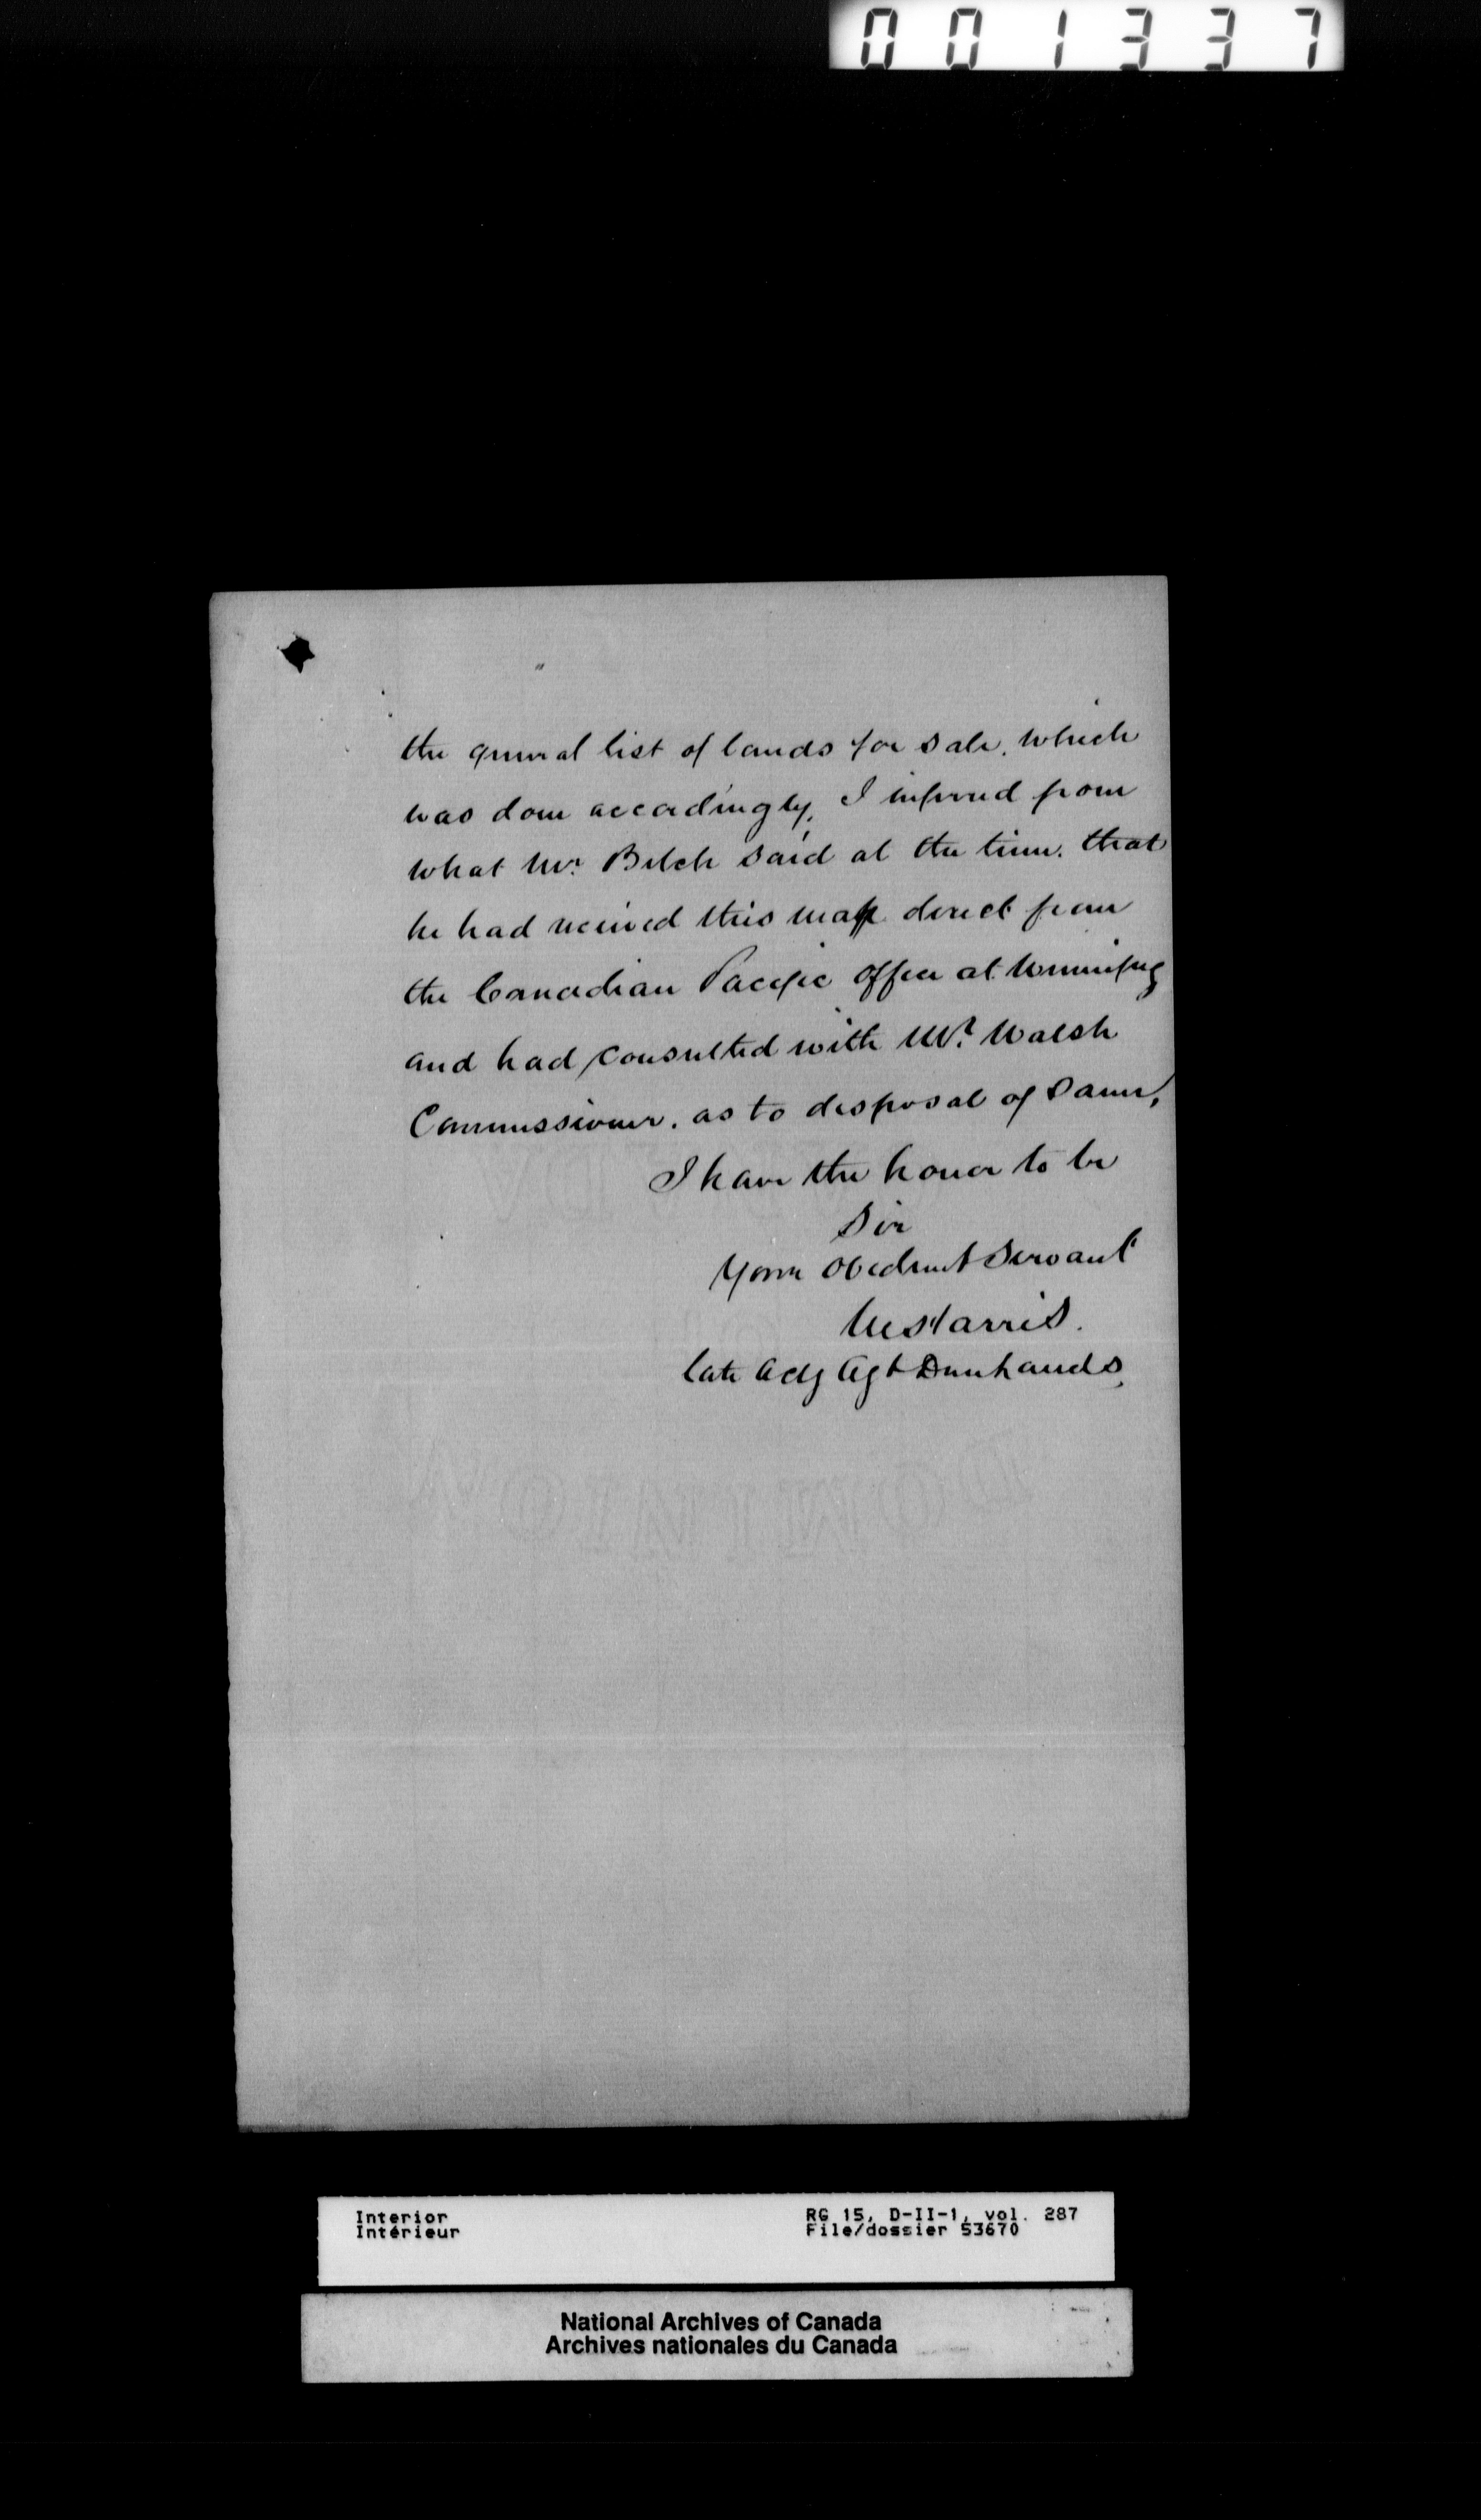 001337
the general list of lands for sale. which
was done accordingly, I inferred from
what Mr. Belch said at the time. that
he had received this map direct from
the Canadian Pacific office at Winnipeg
and had consulted with Mr. Walsh
Commissioner. as to disposal of same,
I have the honor to be
Sir
Your Obedient Servant
Harris.
late actg Agt Dom Lands
DOMINION
Interior
Intérieur
RG 15, D-II-1, vol. 287
File/dossier 53670
National Archives of Canada
Archives nationales du Canada